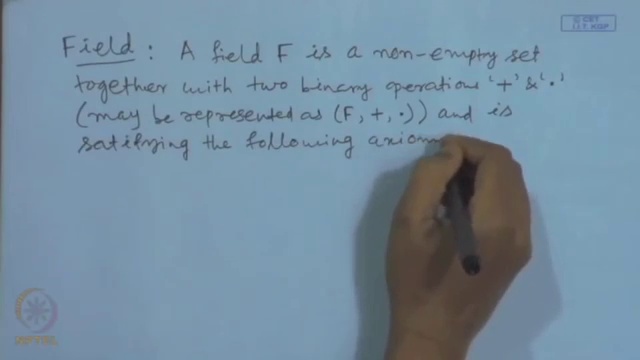 © CET
I.I.T. KGP
Field : A field F is a non-empty set
together with two binary operations '+' & '.'
(may be represented as (F, +, .)) and is
satifying the following axiom
NPTEL